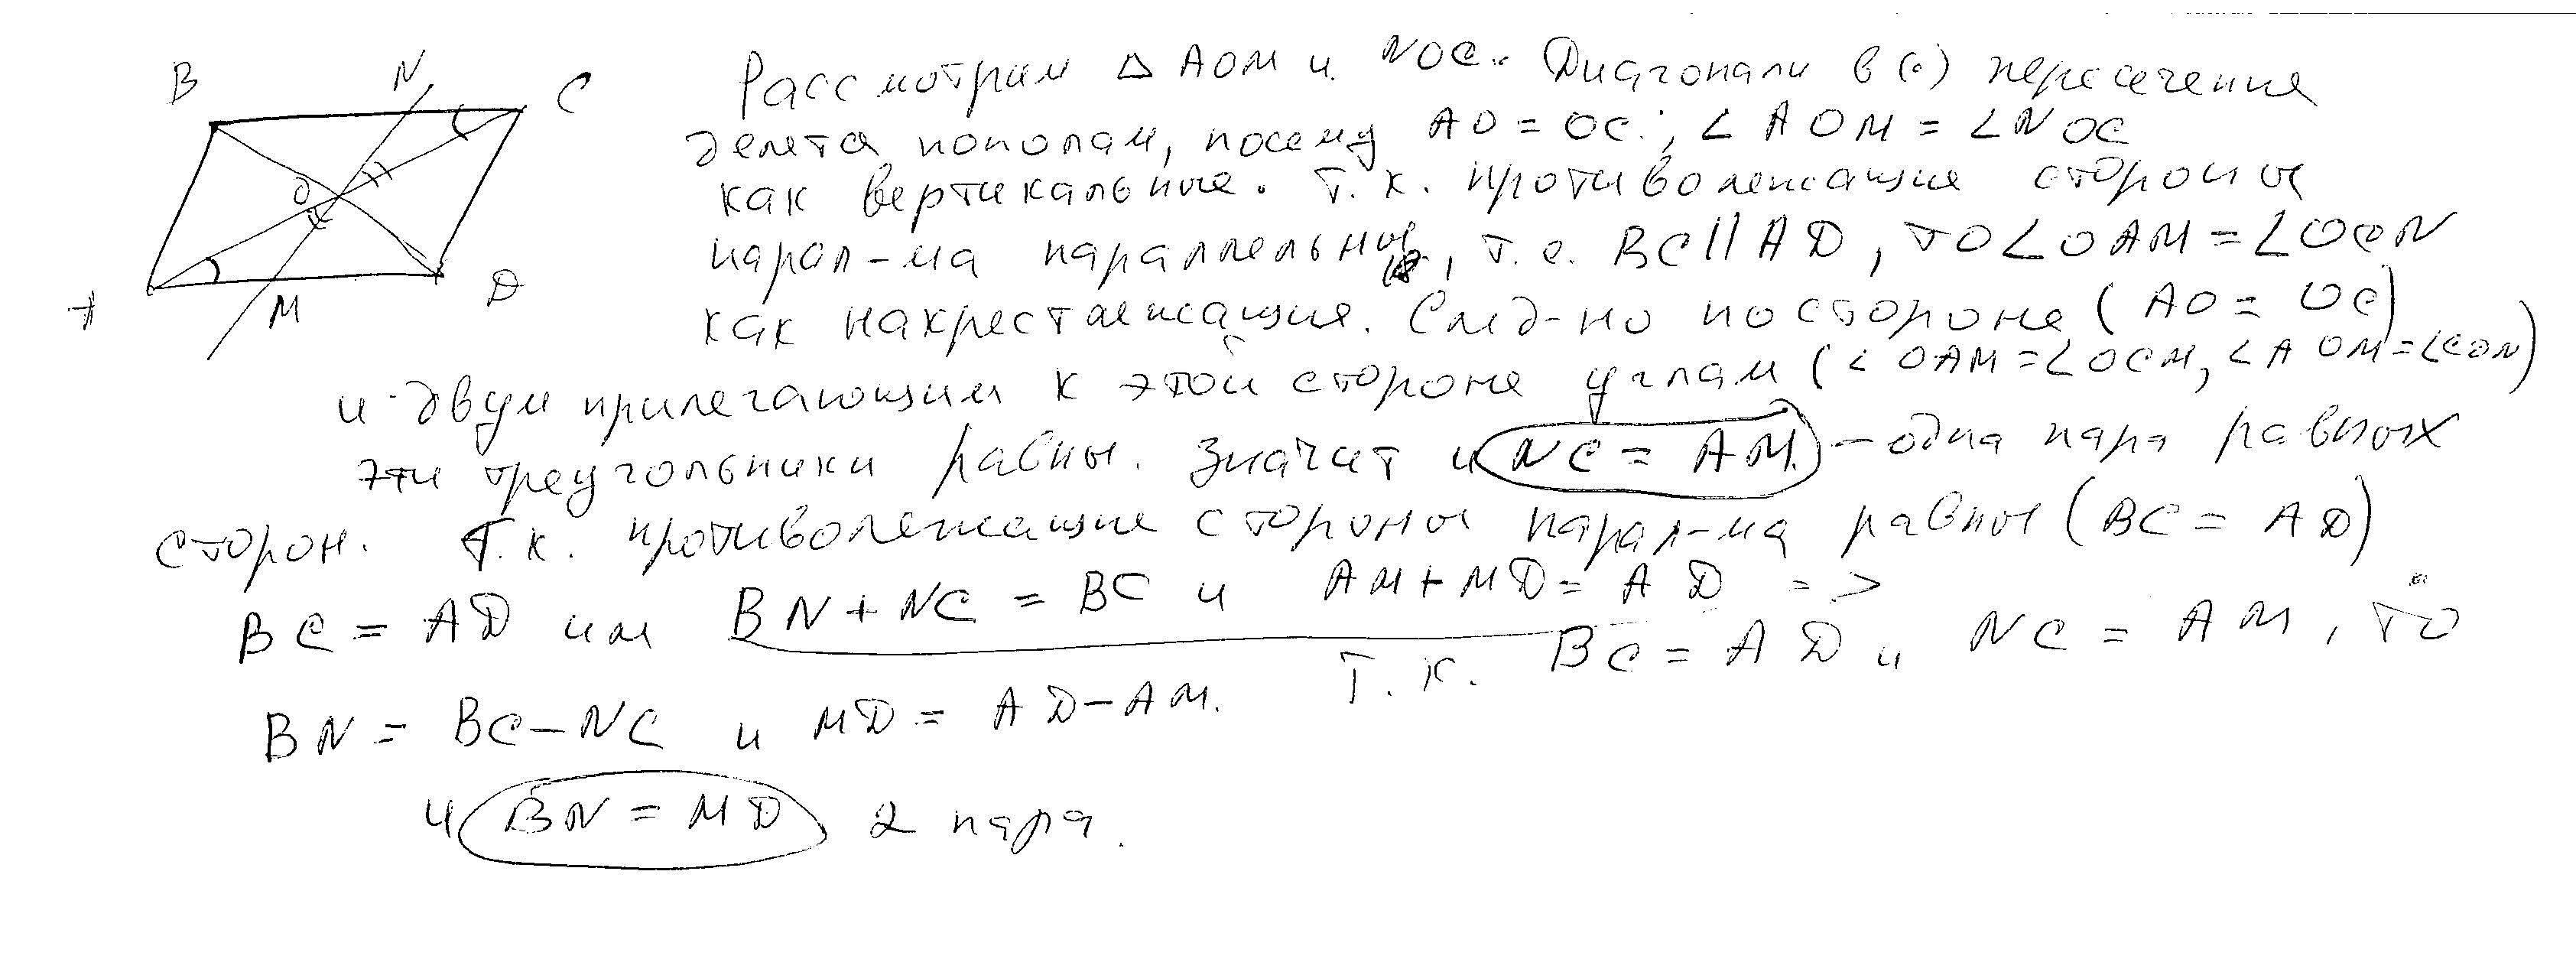 B N C
O
A M D
Рассмотрим △ AOM и NOC. Диагонали в (·) пересечения
делятся пополам, посему AO = OC; ∠ AOM = ∠NOC
как вертикальные. Т.к. противолежащие стороны
парал-ма параллельны, т.е. BC || AD, то ∠OAM = ∠OCN
как накрестлежащие. След-но по стороне (AO = OC)
и двум прилегающим к этой стороне углам (∠OAM = ∠OCM, ∠AOM = ∠CON)
эти треугольники равны. Значит и NC = AM. — одна пара равных
сторон. Т.к. противолежащие стороны парал-ма равны (BC = AD)
BC = AD или BN + NC = BC и AM + MD = AD =>
BN = BC – NC и MD = AD – AM. Т.к. BC = AD и NC = AM, то
и BN = MD 2 пара.